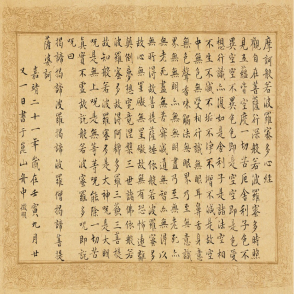 摩訶般若波羅蜜多心經
觀自在菩薩行深般若波羅蜜多時照
見五蘊皆空度一切苦厄舍利子色不
異空空不異色色即是空空即是色受
想行識亦復如是舍利子是諸法空相
不生不滅不垢不淨不增不減是故空
中無色無受想行識無眼耳鼻舌身意
無色聲香味觸法無眼界乃至無意識
界無無明亦無無明盡乃至無老死亦
無老死盡無苦集滅道無智亦無得以
無所得故菩提薩埵依般若波羅蜜多
故心無罣礙無罣礙故無有恐怖遠離顛
倒夢想究竟涅槃三世諸佛依般若
波羅蜜多故得阿耨多羅三藐三菩提
故知般若波羅蜜多是大神呪是大明
呪是無上呪是無等等呪能除一切苦
真實不虛故說般若波羅蜜多呪即說
呪曰
揭諦揭諦波羅揭諦波羅僧揭諦菩提
薩婆訶
嘉靖二十一年歲在壬寅九月廿
又一日書于崑山舟中徵明